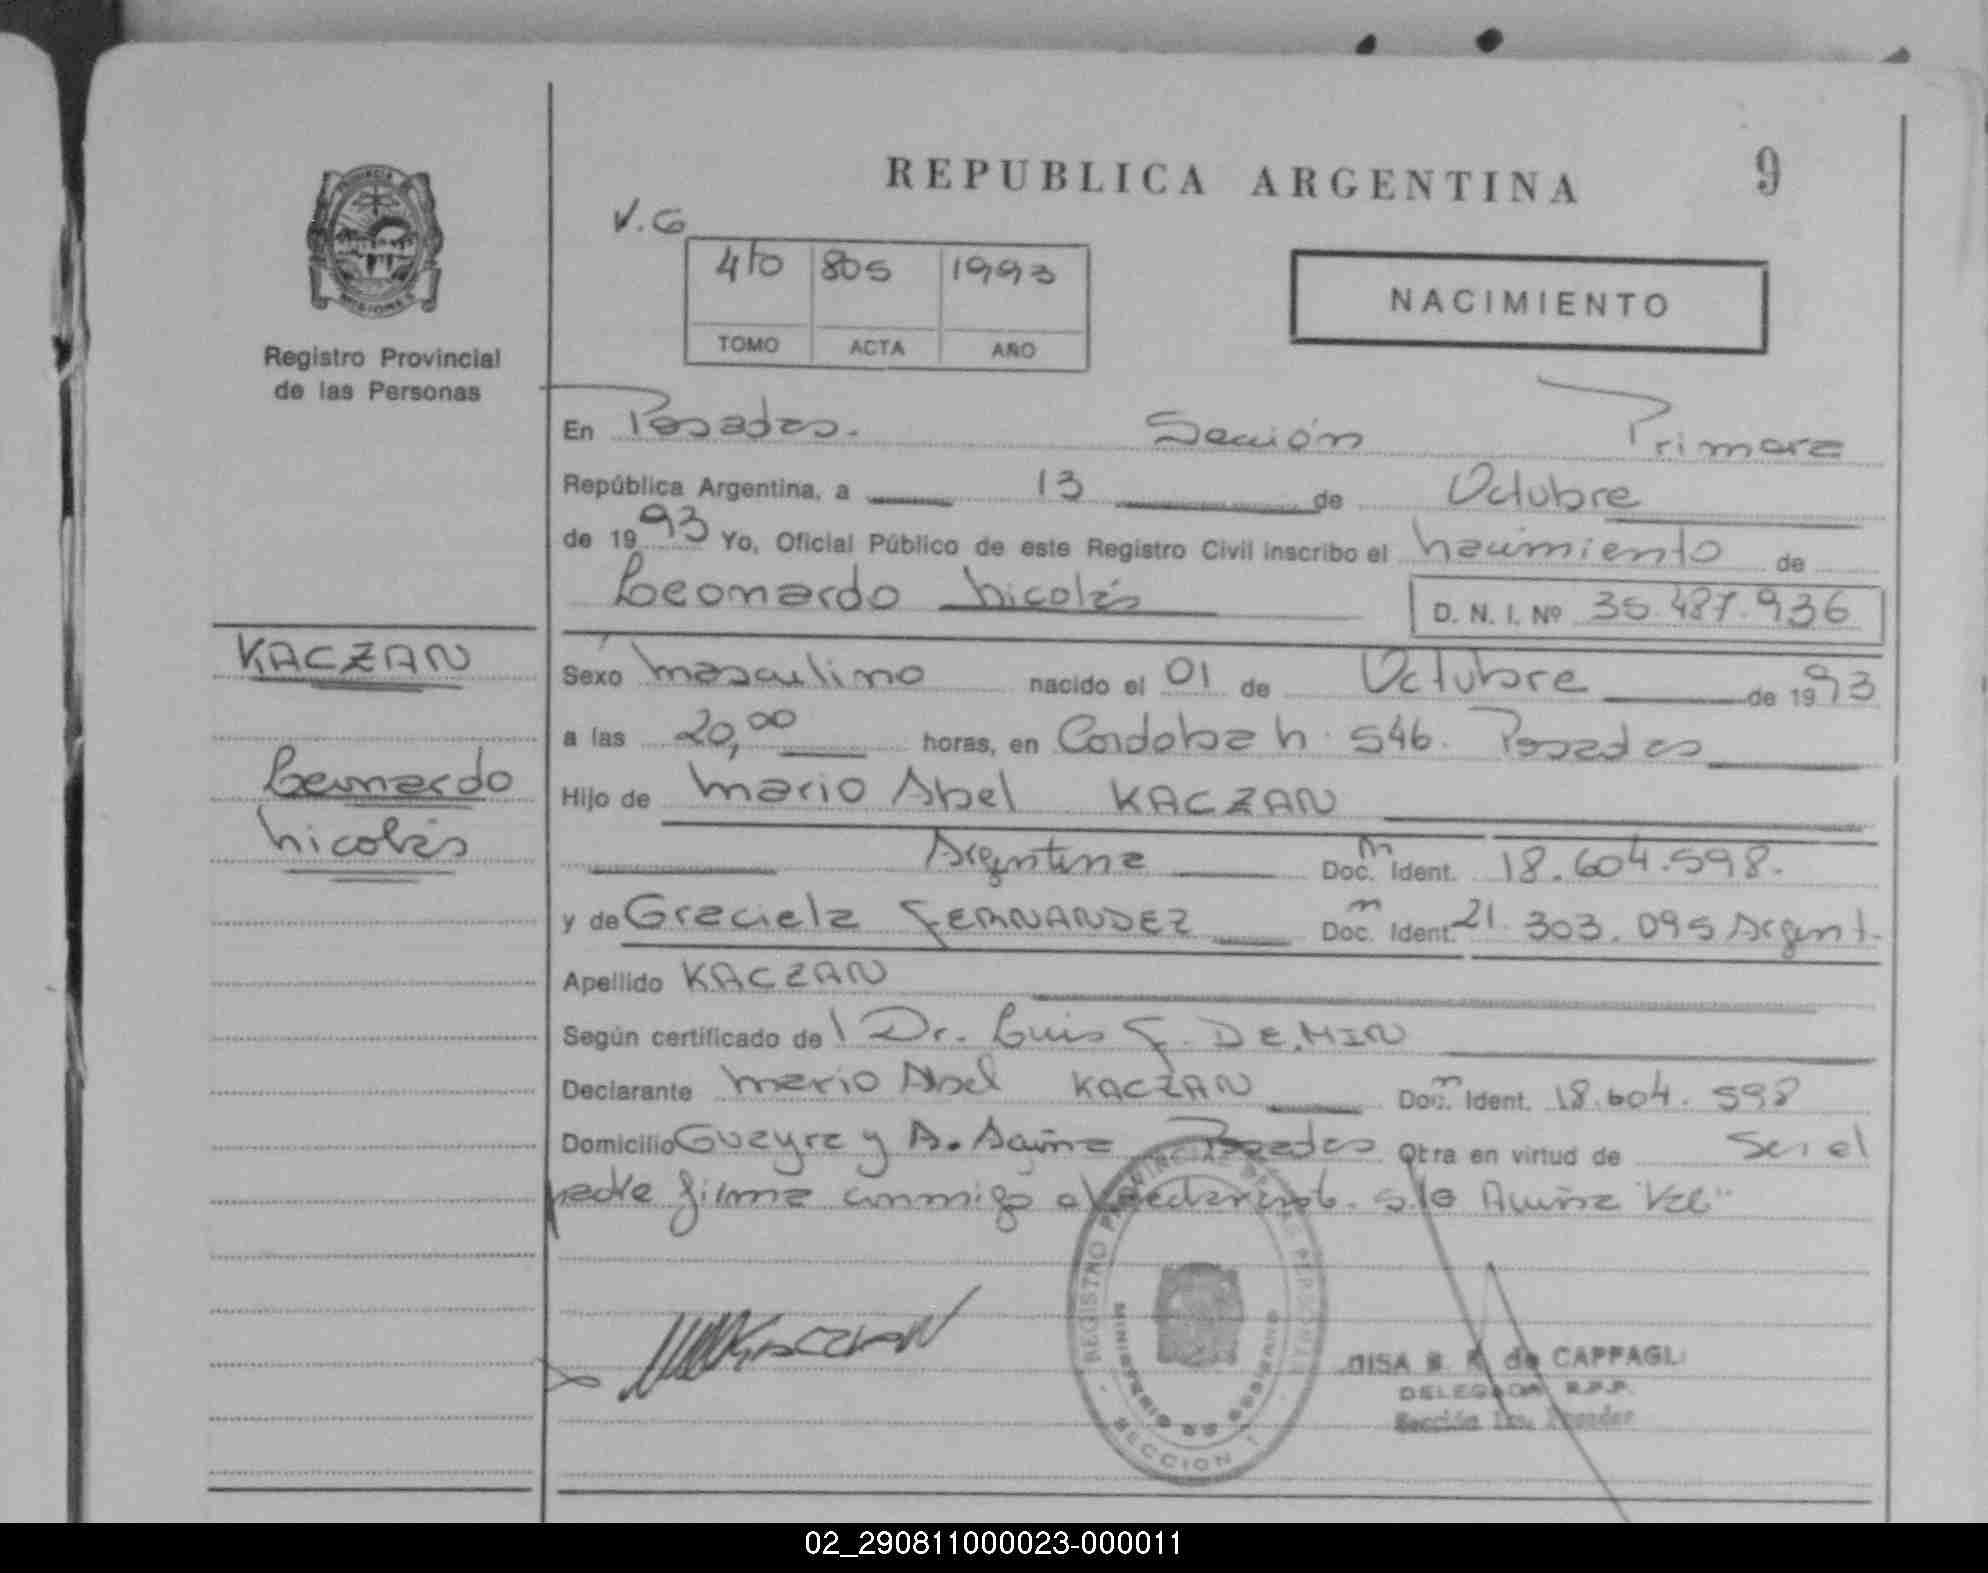 REPUBLICA ARGENTINA 9
V.G
4to 805 1993
TOMO ACTA AÑO
NACIMIENTO
PROVINCIA DE
MISIONES
Registro Provincial
de las Personas
En Posadas. Sección Primera
República Argentina, a 13 de Octubre
de 1993 Yo, Oficial Público de este Registro Civil inscribo el nacimiento de
Leonardo Nicolás D. N. I. Nº 35.487.936
KACZAN
Leonardo
Nicolás
Sexo masculino nacido el 01 de Octubre de 1993
a las 20,00 horas, en Cordoba N. 546. Posadas
Hijo de Mario Abel KACZAN
Argentina Doc. Ident. 18.604.598.
y de Graciela FERNANDEZ Doc. Ident. 21.303.095 Argent.
Apellido KACZAN
Según certificado de Dr. Luis F. DEMIN
Declarante Mario Abel KACZAN Doc. Ident. 18.604.598
Domicilio Guayra y Posadas Otra en virtud de Ser el
padre firma conmigo el declarante. S/o Vale"
KACZAN
REGISTRO PROVINCIAL DE LAS PERSONAS
MINISTERIO DE GOBIERNO
SECCION 1
de CAPPAGLI
DELEGADA R.P.P.
Sección 1ra. Posadas
02_290811000023-000011